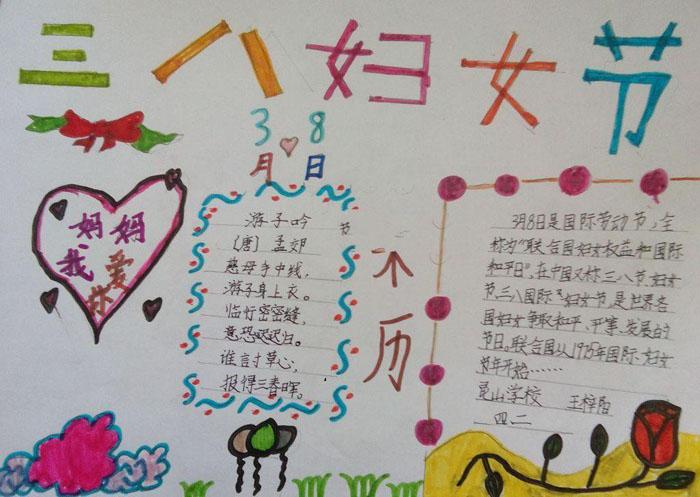 三八妇女节
3 8
月 日
妈妈
我爱
你
游子吟
〔唐〕孟郊
慈母手中线，
游子身上衣。
临行密密缝，
意恐迟迟归。
谁言寸草心，
报得三春晖。
节
来历
3月8日是国际劳动节，全
称为"联合国妇女权益和国际
和平日"。在中国又称三八节、妇女
节、三八国际妇女节，是世界各
国妇女争取和平、平等、发展的
节日。联合国从1975年国际妇女
年开始……
昆山学校 王梓阳
四二